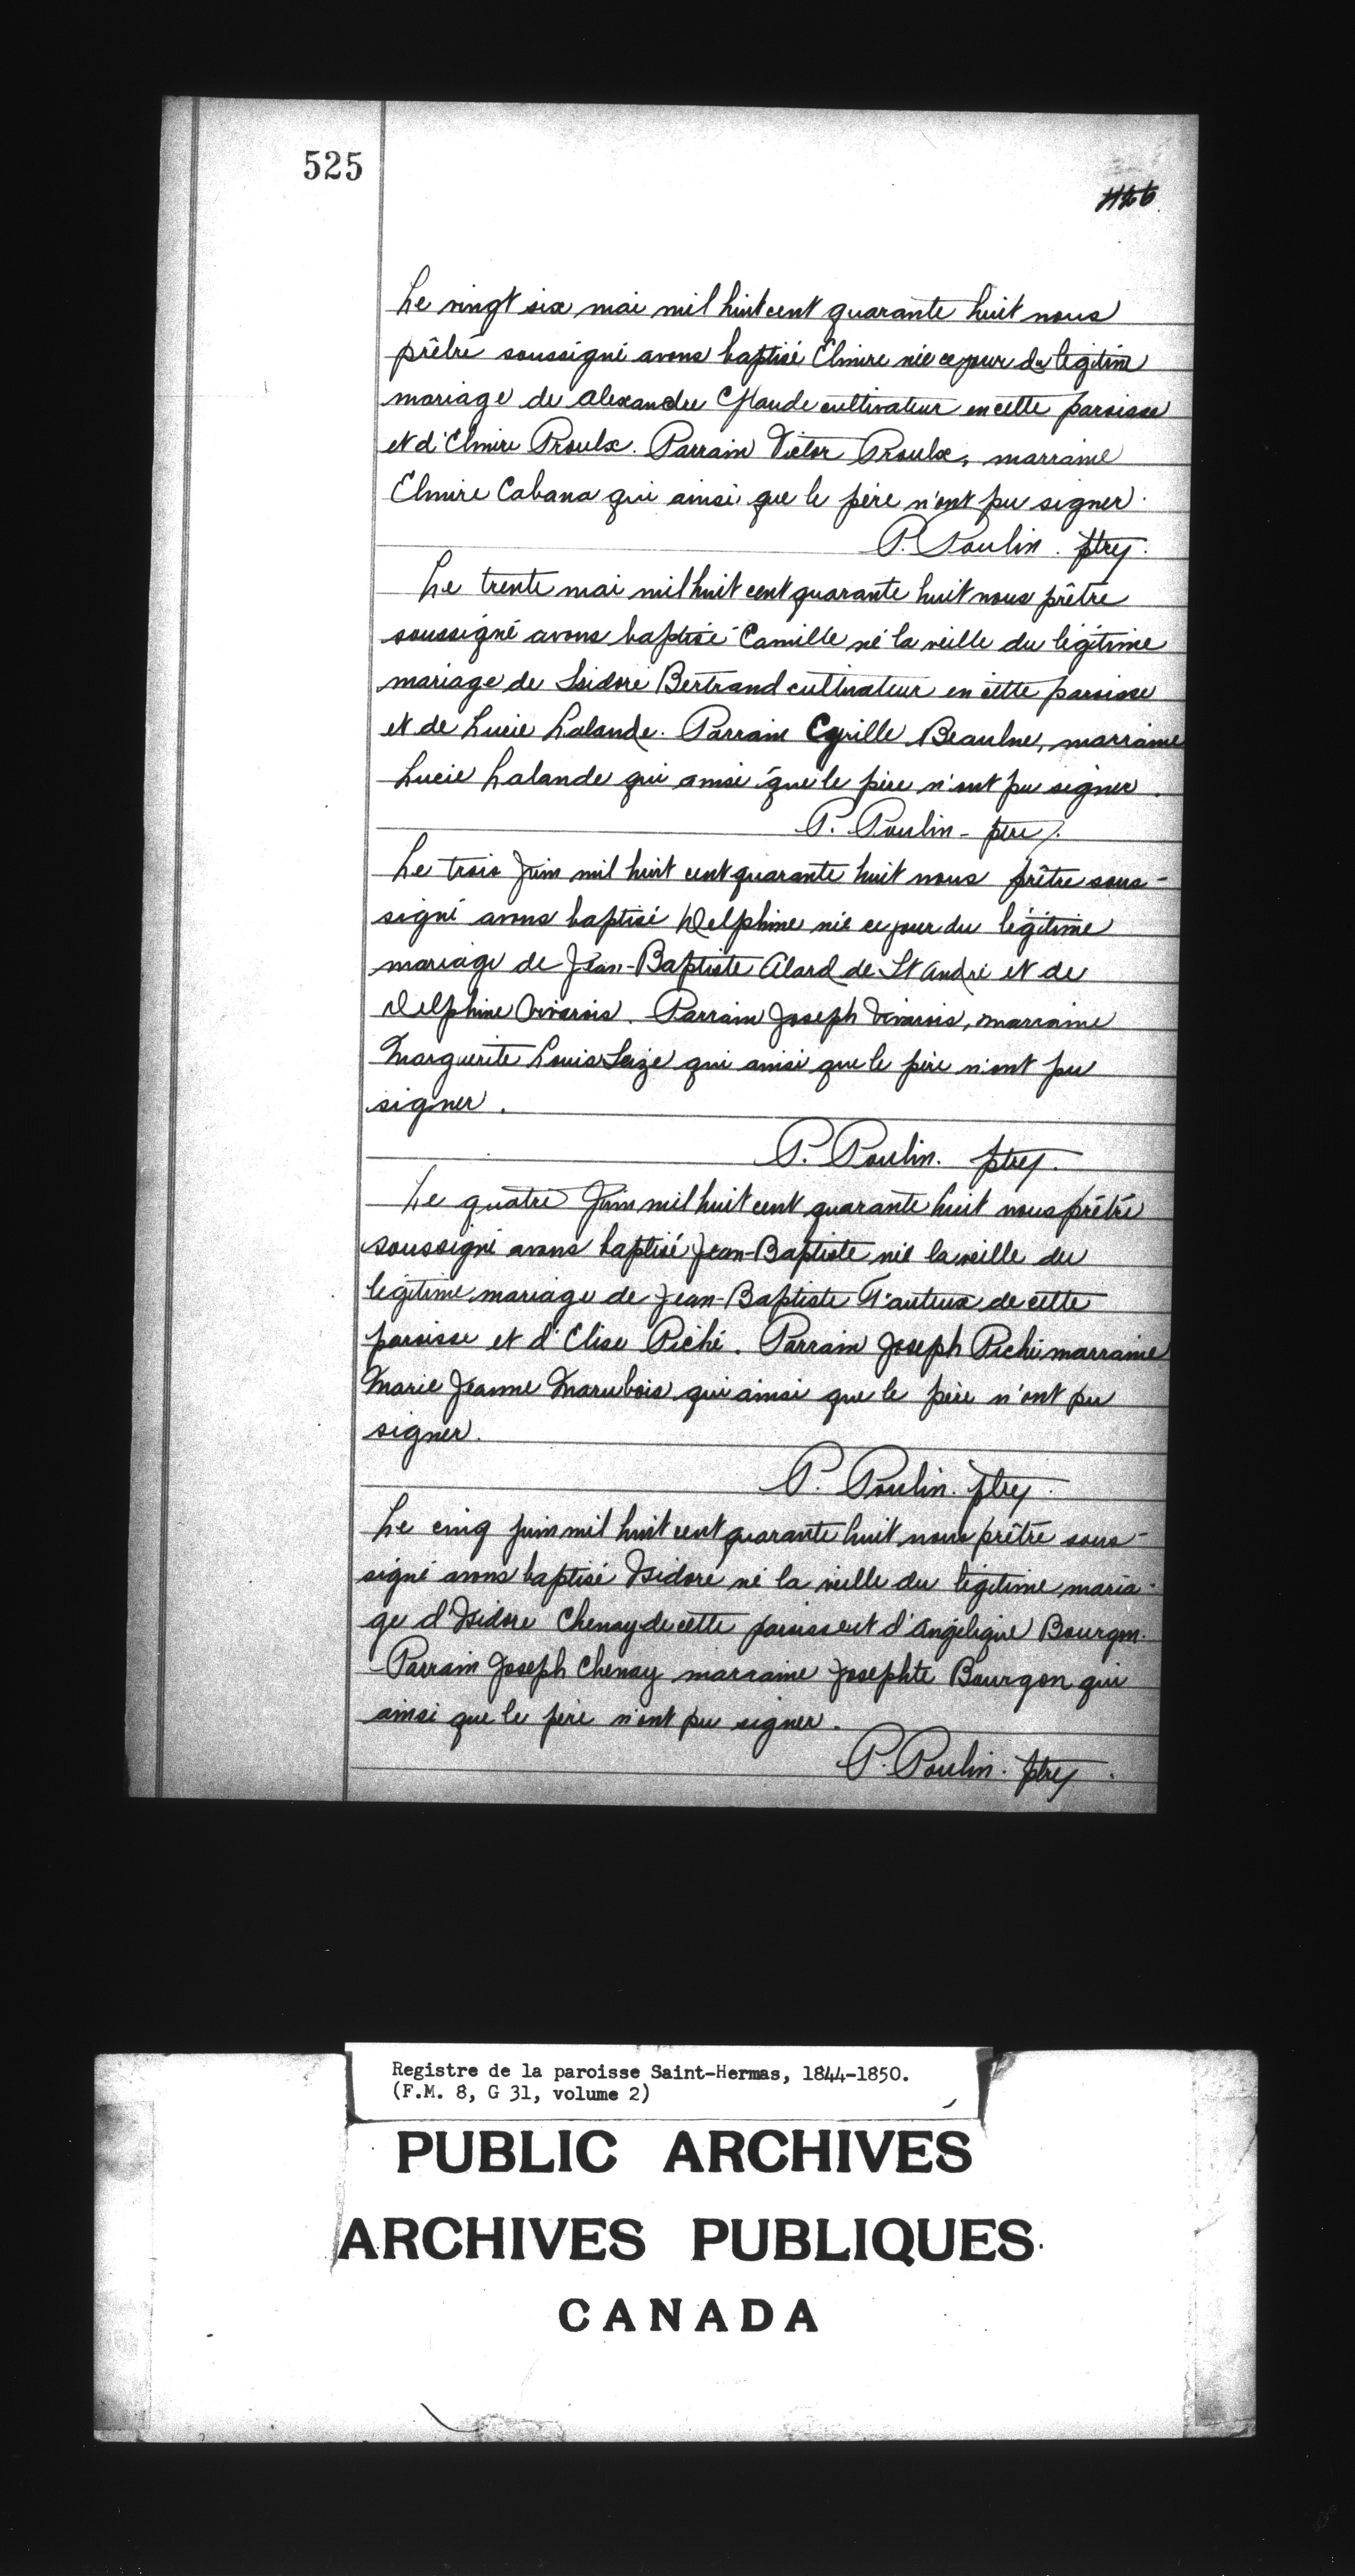 525
Le vingt six mai mil huit cent quarante huit nous
prêtre soussigné avons baptisé Elmire née ce jour du légitime
mariage de Alexandre Claude cultivateur en cette paroisse
et d'Elmire Proulx. Parrain Victor Proulx, marraine
Elmire Cabana qui ainsi que le père n'ont pu signer.
P. Poulin. ptre
Le trente mai mil huit cent quarante huit nous prêtre
soussigné avons baptisé Camille né la veille du légitime
mariage de Isidore Bertrand cultivateur en cette paroisse
et de Lucie Lalande. Parrain Cyrille Beaulne, marraine
Lucie Lalande qui ainsi que le père n'ont pu signer.
P. Poulin - ptre
Le trois Juin mil huit cent quarante huit nous prêtre sous-
signé avons baptisé Delphine née ce jour du légitime
mariage de Jean-Baptiste Alard de St André et de
Delphine Vivarais. Parrain Joseph Vivarais, marraine
Marguerite Louis Seize qui ainsi que le père n'ont pu
signer.
P. Poulin. ptre
Le quatre Juin mil huit cent quarante huit nous prêtre
soussigné avons baptisé Jean-Baptiste née la veille du
légitime mariage de Jean-Baptiste de cette
paroisse et d'Elise Piché. Parrain Joseph Piché marraine
Marie Jeanne qui ainsi que le père n'ont pu
signer.
P. Poulin. ptre
Le cinq juin mil huit cent quarante huit nous prêtre sous-
signé avons baptisé Isidore né la veille du légitime maria-
ge d'Isidore Chenay de cette paroisse et d'Angélique Bourgon.
Parrain Joseph Chenay marraine Josephte Bourgon qui
ainsi que le père n'ont pu signer.
P. Poulin. ptre
Registre de la paroisse Saint-Hermas, 1844-1850.
(F.M. 8, G 31, volume 2)
PUBLIC ARCHIVES
ARCHIVES PUBLIQUES
CANADA